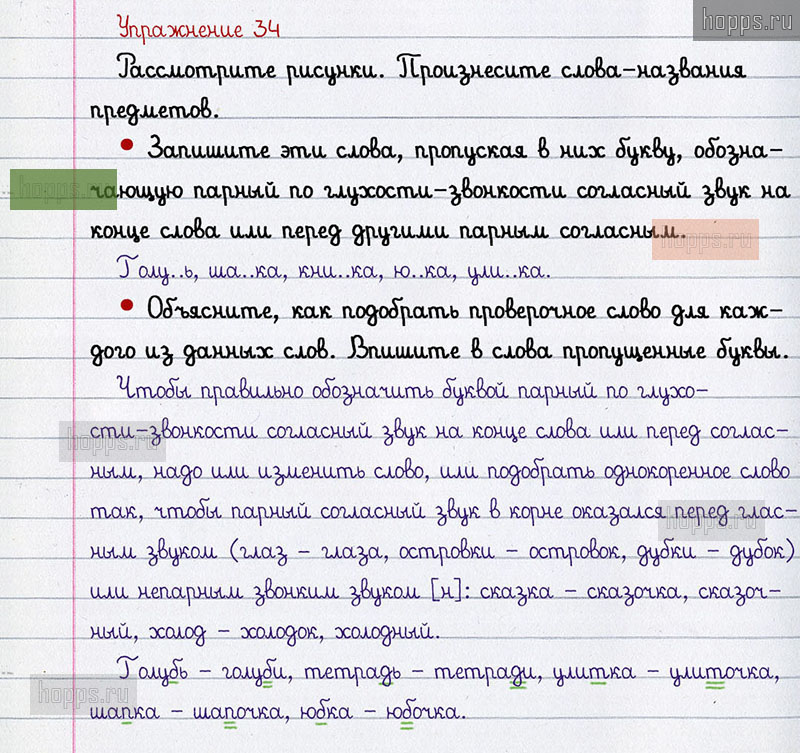 hopps.ru
Упражнение 34
Рассмотрите рисунки. Произнесите слова-названия
предметов.
• Запишите эти слова, пропуская в них букву, обозна-
чающую парный по глухости-звонкости согласный звук на
hopps.ru
конце слова или перед другими парным согласным.
hopps.ru
Голу..ь, ша..ка, кни..ка, ю..ка, ули..ка.
• Объясните, как подобрать проверочное слово для каж-
дого из данных слов. Впишите в слова пропущенные буквы.
Чтобы правильно обозначить буквой парный по глухо-
сти-звонкости согласный звук на конце слова или перед соглас-
hopps.ru
ным, надо или изменить слово, или подобрать однокоренное слово
так, чтобы парный согласный звук в корне оказался перед глас-
hopps.ru
ным звуком (глаз - глаза, островки - островок, дубки - дубок)
или непарным звонким звуком [н]: сказка - сказочка, сказоч-
ный, холод - холодок, холодный.
Голубь - голуби, тетрадь - тетради, улитка - улиточка,
hopps.ru
шапка - шапочка, юбка - юбочка.